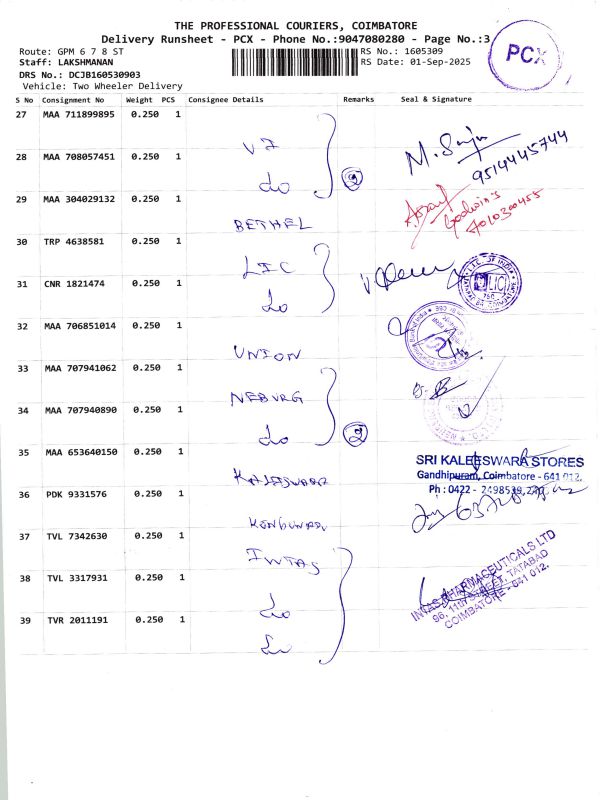 THE PROFESSIONAL COURIERS, COIMBATORE
Delivery Runsheet - PCX - Phone No.:9047080280 - Page No.:3
PCX
Route: GPM 6 7 8 ST
RS No.: 1605309
Staff: LAKSHMANAN
RS Date: 01-Sep-2025
DRS No.: DCJB160530903
Vehicle: Two Wheeler Delivery
S No Consignment No Weight PCS Consignee Details Remarks Seal & Signature
27 MAA 711899895 0.250 1
V7
M. Saju
9514445744
28 MAA 708057451 0.250 1
do
2
29 MAA 304029132 0.250 1
BETHEL
30 TRP 4638581 0.250 1
LIC
31 CNR 1821474 0.250 1
do
LIC
32 MAA 706851014 0.250 1
UNION
33 MAA 707941062 0.250 1
NEBURG
34 MAA 707940890 0.250 1
do
2
35 MAA 653640150 0.250 1
KALESWARA
SRI KALEESWARA STORES
Gandhipuram, Coimbatore - 641 012.
Ph : 0422 - 2498539,
36 PDK 9331576 0.250 1
37 TVL 7342630 0.250 1
INTAS
38 TVL 3317931 0.250 1
do
INTAS PHARMACEUTICALS LTD
96, 11th STREET, TATABAD
COIMBATORE - 641 012.
39 TVR 2011191 0.250 1
do